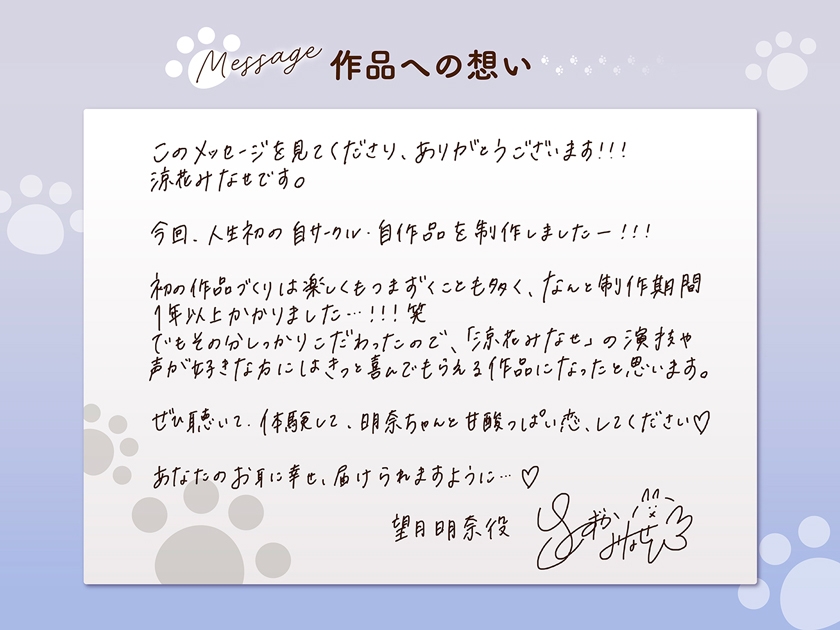 Message 作品への想い
このメッセージを見てくださり、ありがとうございます!!!
涼花みなせです。
今回、人生初の自サークル・自作品を制作しましたー!!!
初の作品づくりは楽しくもつまずくことも多く、なんと制作期間
1年以上かかりました…!!!笑
でもその分しっかりこだわったので、「涼花みなせ」の演技や
声が好きな方にはきっと喜んでもらえる作品になったと思います。
ぜひ聴いて、体験して、明奈ちゃんと甘酸っぱい恋、してください♡
あなたのお耳に幸せ、届けられますように…♡
望月明奈役
すずか
みなせ